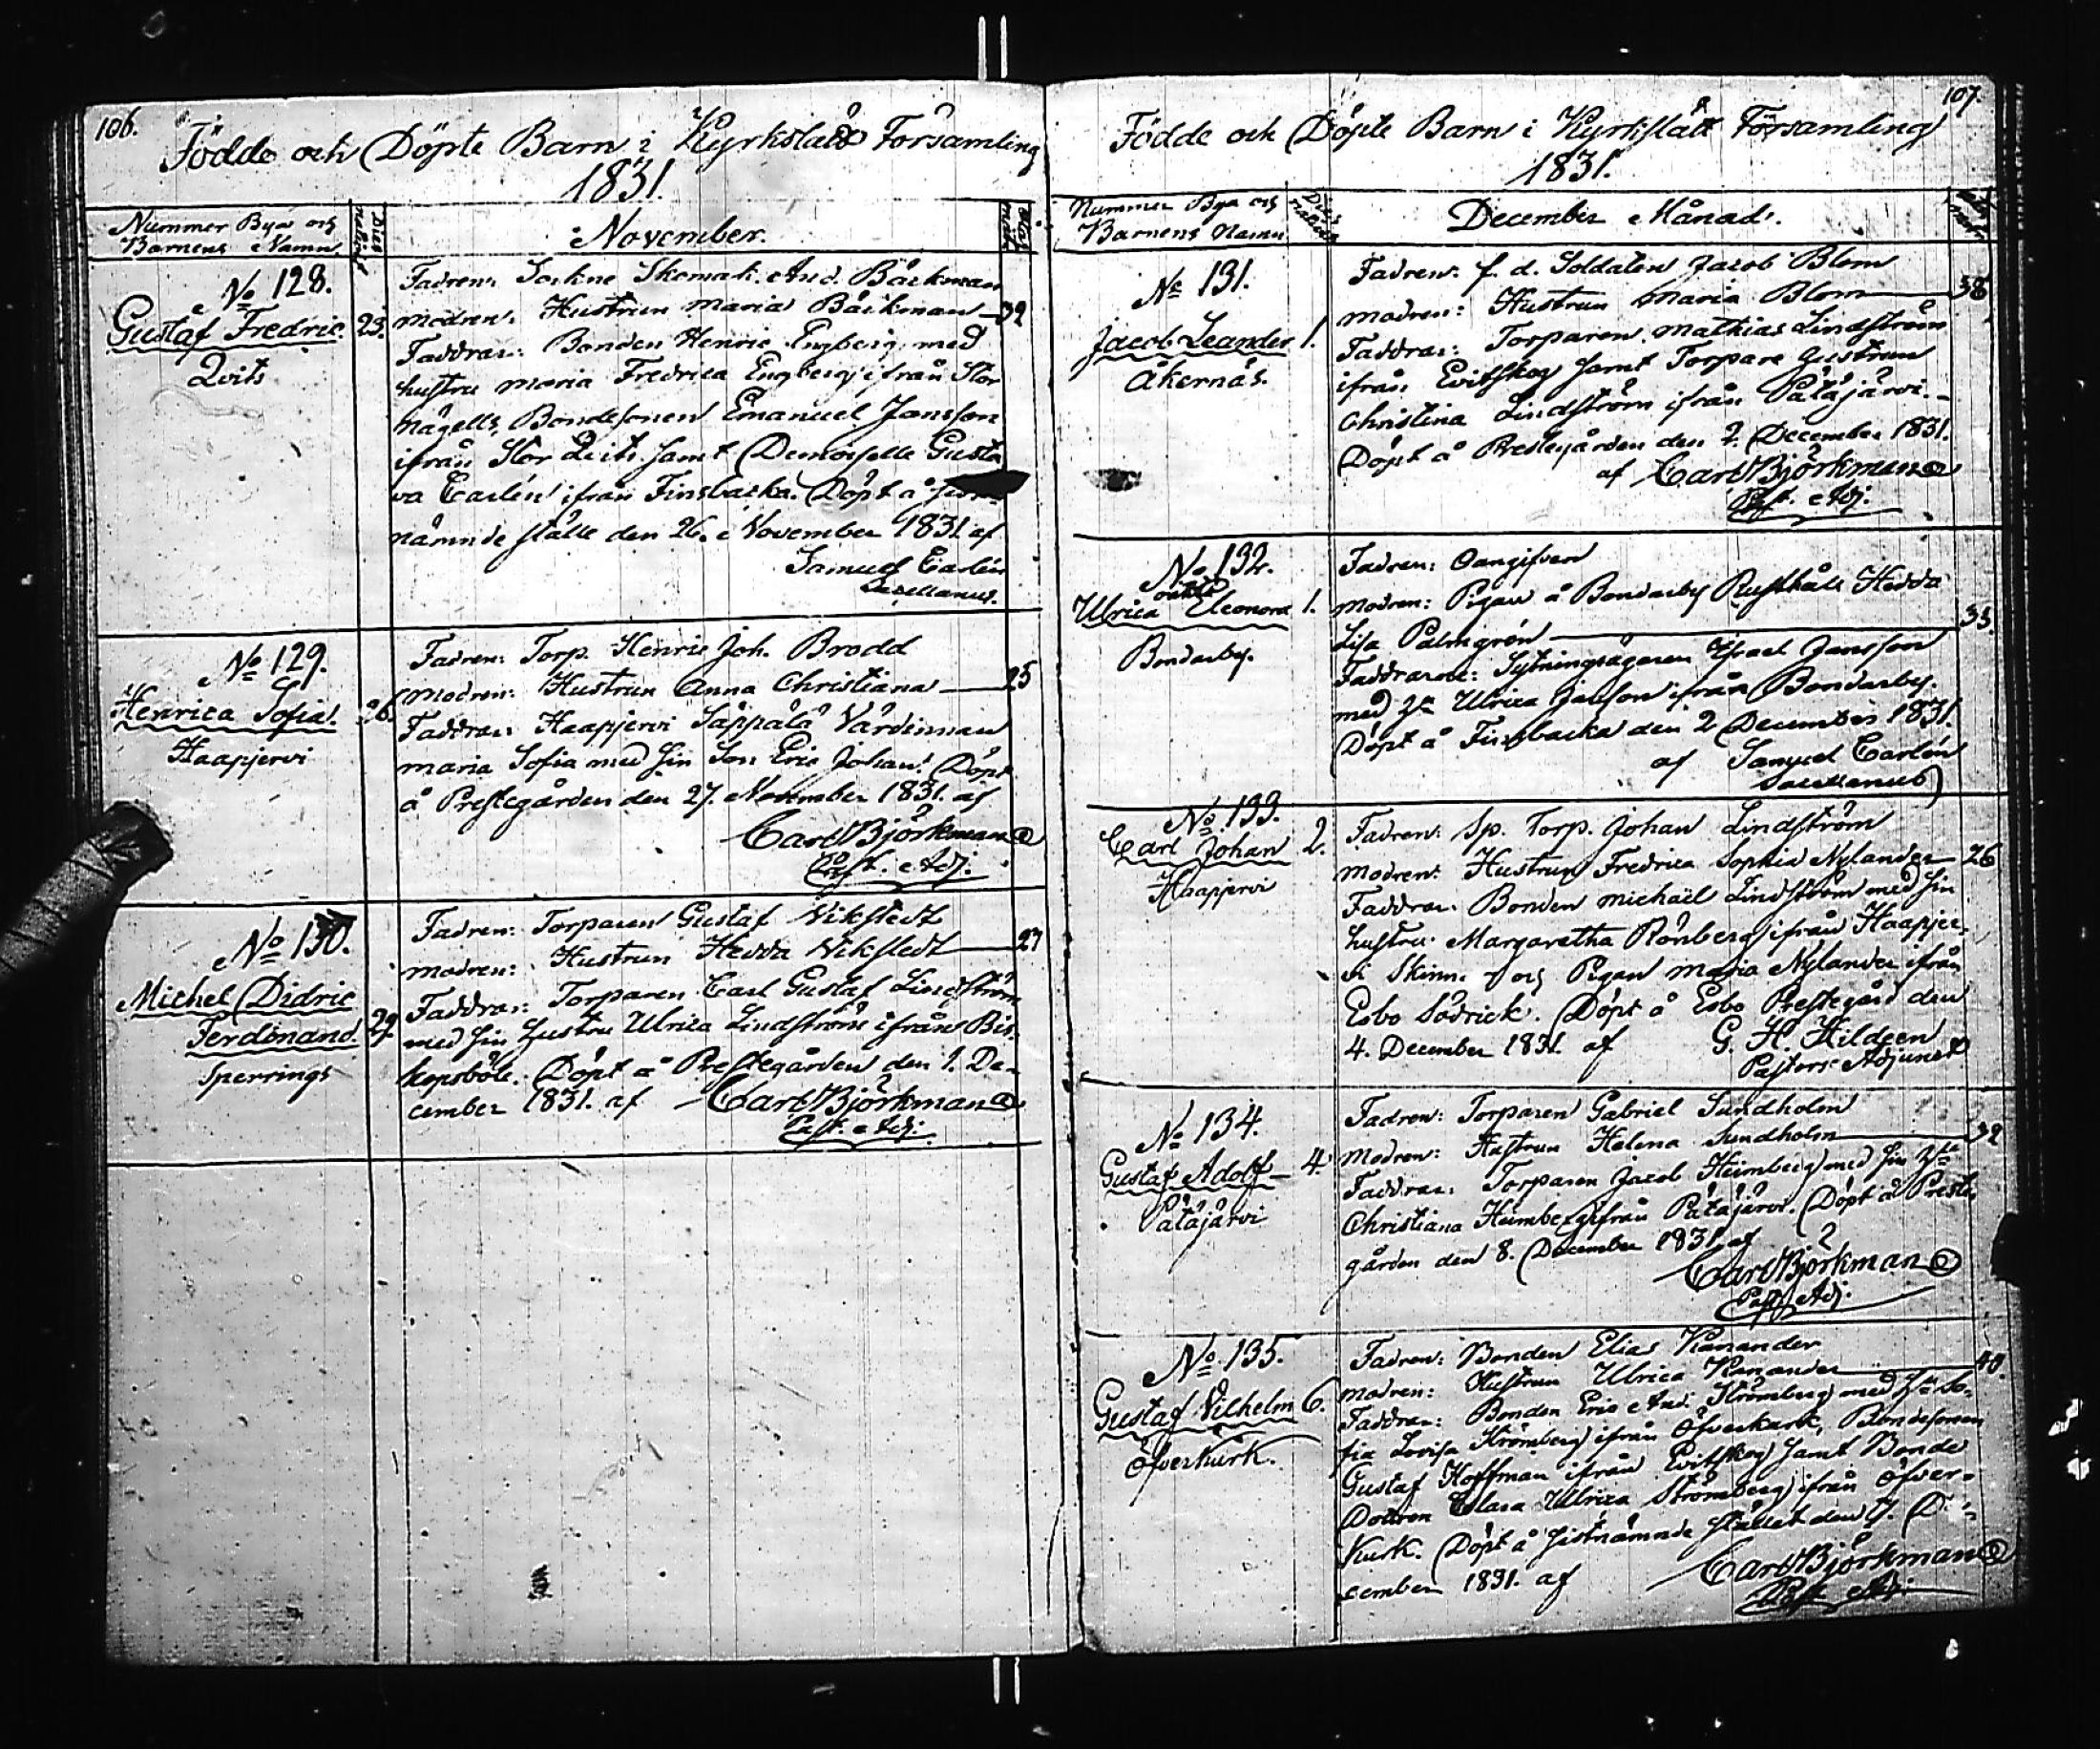 106.
Födde och Döpte Barn i Kyrkslätt Församling
1831.
Nummer Byar och
Barnens Namn.
Dies
natalis
November.
No 128.
Gustaf Fredric.
Qvits
23.
Fadren: Sockne Skomak. And. Bäckman
Modren: Hustrun Maria Bäckman 32
Faddrar: Bonden Henric Engberg med
hustru Maria Fredrica Engberg ifrån Stor
Nägells, Bondesonen Emanuel Jansson
ifrån Stor Qvits samt Demoiselle Gusta
va Carlén ifrån Finsbacka. Döpt å
nämnde ställe den 26. November 1831 af
Samuel Carlén
Sacellanus.
No 129.
Henrica Sofia.
Haapjervi
26.
Fadren: Torp. Henric Joh. Brodd
Modren: Hustrun Anna Christiana 25
Faddrar: Haapjervi Säppälä Värdinnan
Maria Sofia med sin Son Eric Johan. Döpt
å Prestegården den 27. November 1831. af
Carl Björkman
Past. Adj.
No 130.
Michel Didric
Ferdinand.
Sperrings
29.
Fadren: Torparen Gustaf Vikstedt
Modren: Hustrun Hedda Vikstedt 27
Faddrar: Torparen Carl Gustaf Lindström
med sin hustru Ulrica Lindström ifrån Bis-
kopsböle. Döpt å Prestegården den 1. De-
cember 1831. af Carl Björkman
Past. Adj.
107.
Födde och Döpte Barn i Kyrkslätt Församling
1831.
Nummer Bya och
Barnens Namn
Dies
natalis
December Månad.
No 131.
Jacob Leander
Åkernäs.
1.
Fadren: f. d. Soldaten Jacob Blom
Modren: Hustrun Maria Blom 38
Faddrar: Torparen Mathias Lindström
ifrån Evitskog samt Torpare hustrun
Christina Lindström ifrån Pätäjärvi.
Döpt å Prestegården den 2. December 1831.
af Carl Björkman
Past. Adj.
No 132.
oäkta
Ulrica Eleonora
Bondarby.
1.
Fadren: Oangifven
Modren: Pigan å Bondarby Rusthåll Hedda
Lisa Palmgrén 33.
Faddrarne: Sytningsägaren Israel Jansson
med hu Ulrica Jansson ifrån Bondarby.
Döpt å Finsbacka den 2 December 1831.
af Samuel Carlén
Sacellanus
No 133.
Carl Johan
Haapjervi
2.
Fadren: Sp. Torp. Johan Lindström
Modren: Hustrun Fredrica Sophia Nylander 26
Faddrar: Bonden Michaël Lindström med sin
hustru Margaretha Rönberg ifrån Haapjer-
vi Skinn. och Pigan Maria Nylander ifrån
Esbo Södrick. Döpt å Esbo Prestegård den
4. December 1831. af G. H. Hildeen
Pastors Adjunct
No 134.
Gustaf Adolf
Pätäjärvi
4.
Fadren: Torparen Gabriel Sundholm
Modren: Hustrun Helena Sundholm 32
Faddrar: Torparen Jacob Heimberg med sin hu
Christiana Heimberg ifrån Pätäjärvi. Döpt å Preste
gården den 8. December 1831. af
Carl Björkman
Past. Adj.
No 135.
Gustaf Vilhelm
Öfverkurk.
6.
Fadren: Bonden Elias Kanander
Modren: Hustrun Ulrica Kanander 40.
Faddrar: Bonden Eric And. Strömberg med hu So-
fia Lovisa Strömberg ifrån Öfverkurk, Bondesonen
Gustaf Hoffman ifrån Evitskog samt Bonde
Dottren Clara Ulrica Strömberg ifrån Öfver-
kurk. Döpt å sistnämnde stället den 7. De-
cember 1831. af Carl Björkman
Past. Adj.